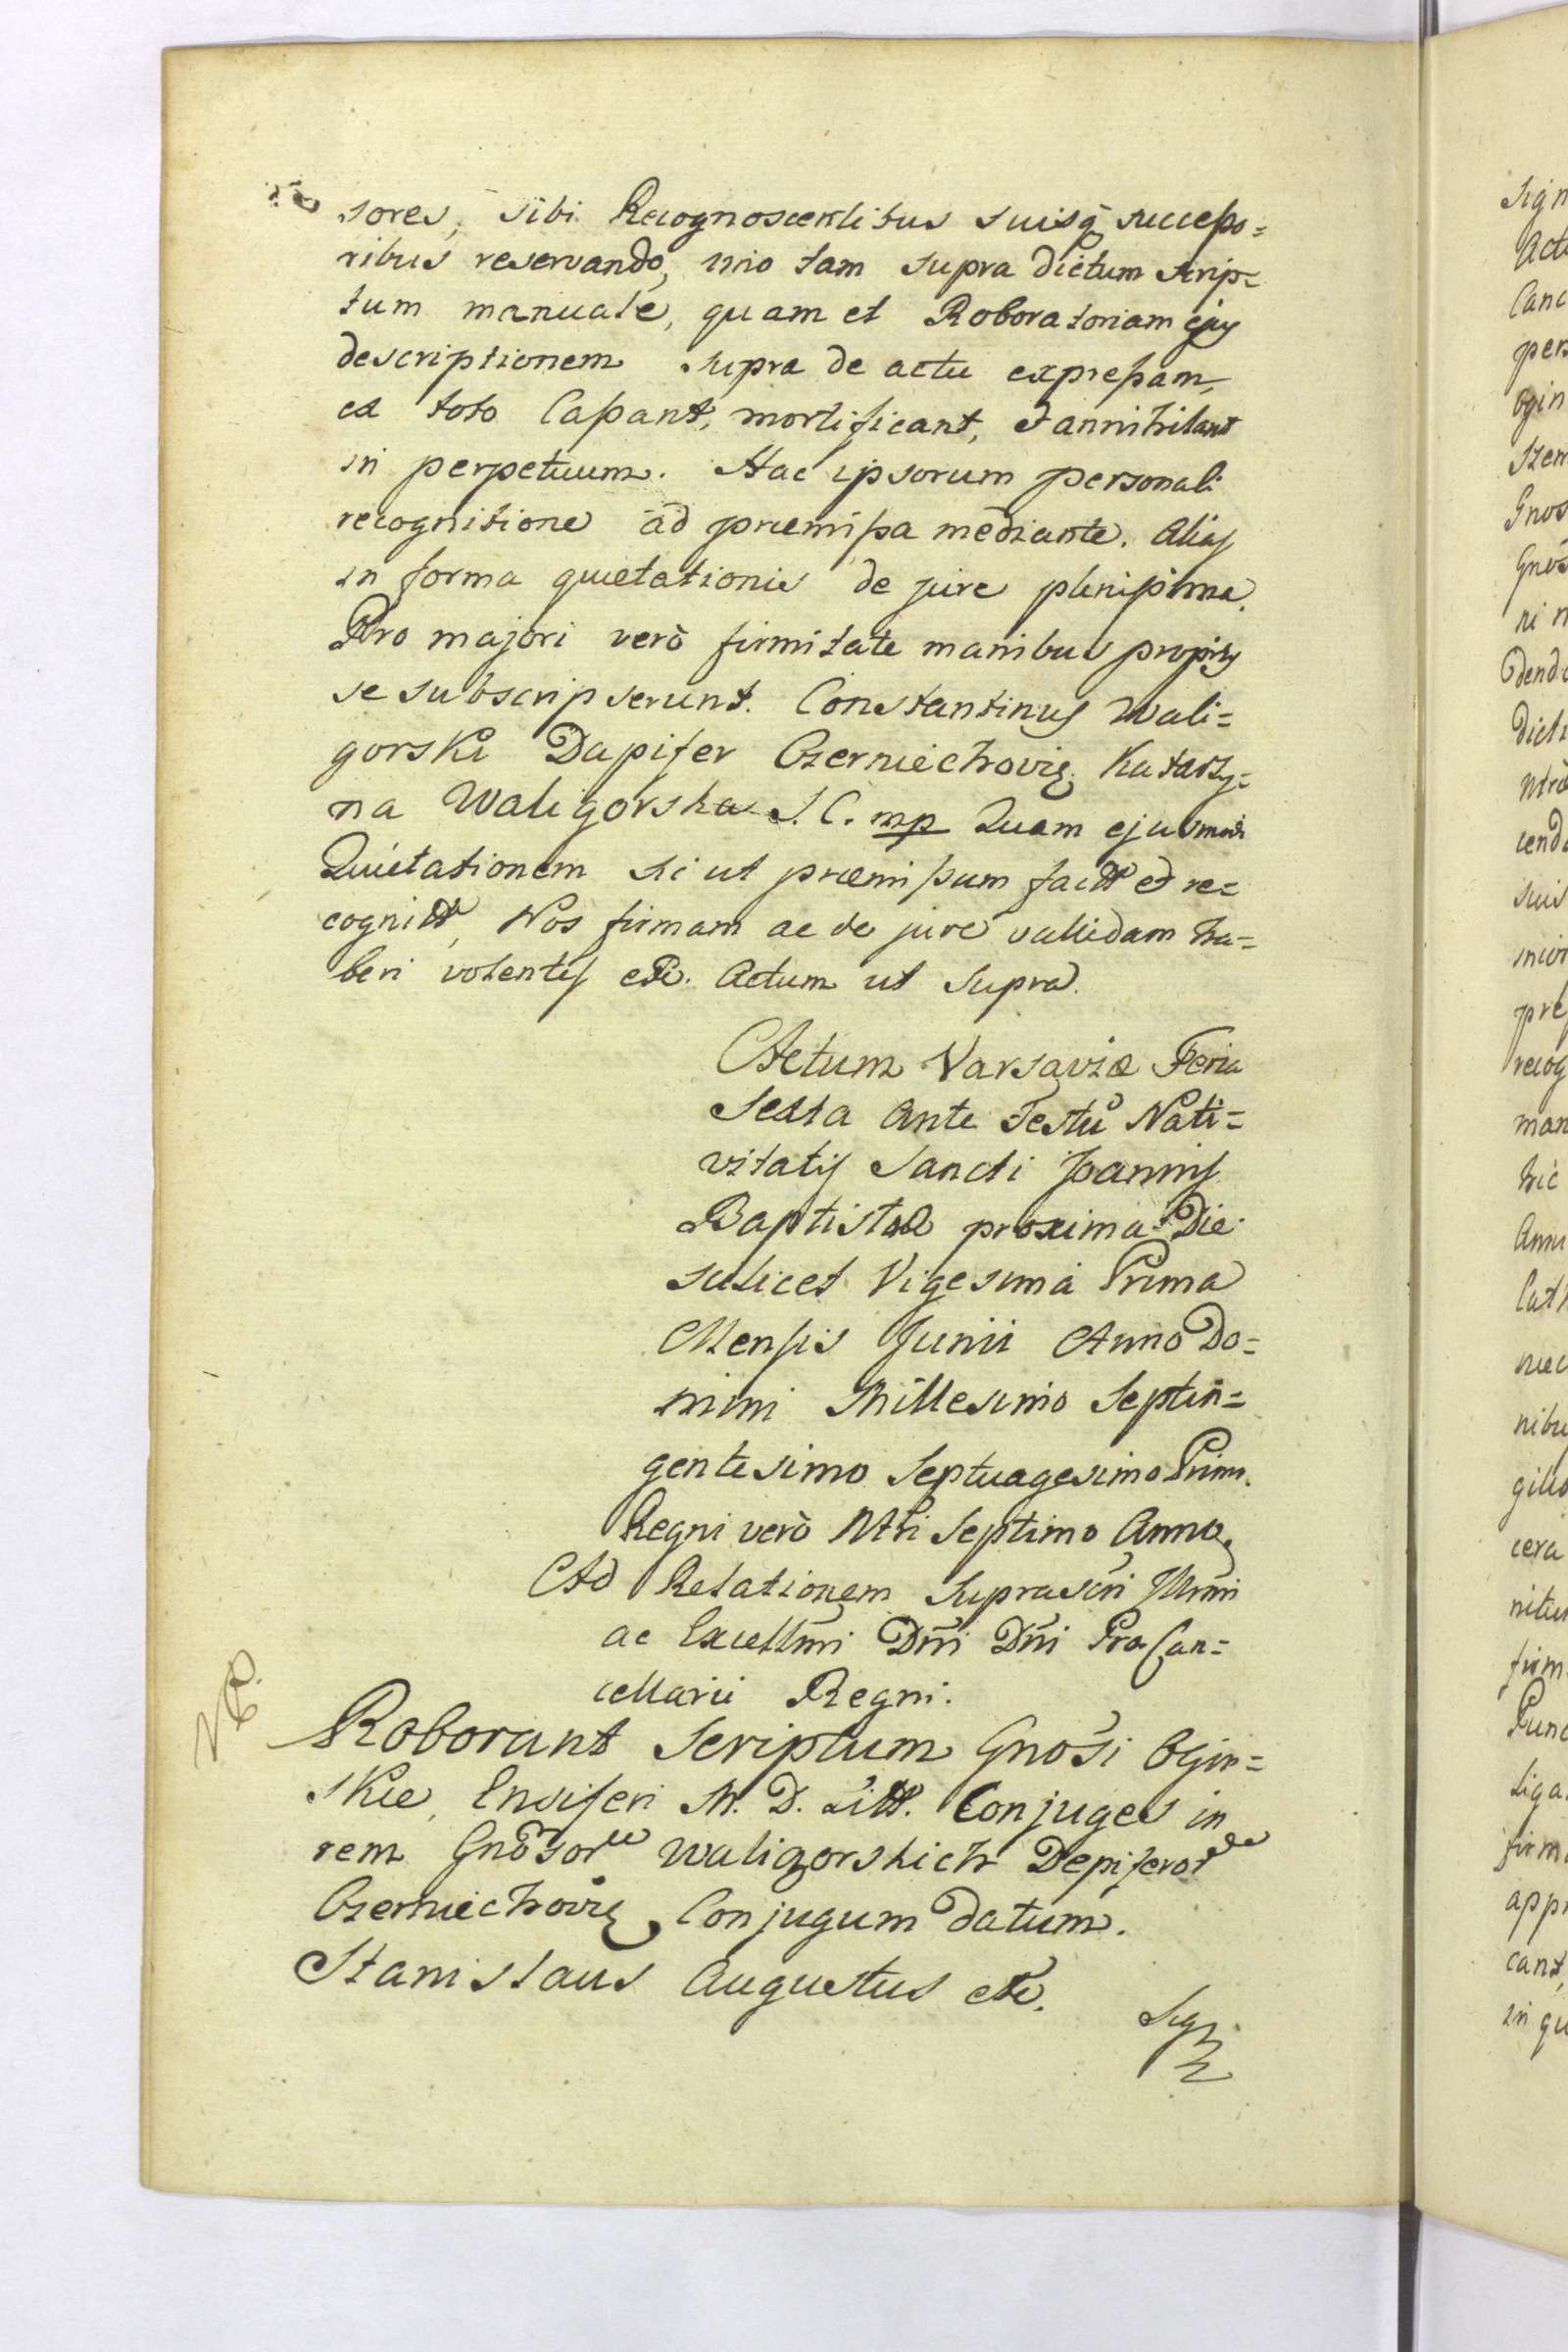 sores, sibi Recognoscentibus suisq̃ successo=
ribus reservando, imo tam supra dictum scrip=
tum manuale, quam et Roboratoriam ejus
descriptionem supra de actu expressam,
ex toto Cassant, mortificant, et annihilant
in perpetuum. Hac ipsorum personali
recognitione ad præmissa mediante. Alias
in forma quietationis de jure plenissima.
Pro majori verò firmitate manibus propriis
se subscripserunt. Constantinus Wali=
gorski Dapifer Czerniechovię Katarzy=
na Waligorska S. C. mp Quam ejusmodi
Quietationem sic ut præmissum factt̃ et re=
cognitt̃, Nos firmam ac de jure validam ha=
beri volentes etc. Actum ut supra.
Actum Varsaviæ Feria
Sexta Ante Festũ Nati=
vitatis Sancti Joannis
Baptistæ proxima Die
scilicet Vigesima Prima
Mensis Junii Anno Do=
mini Millesimo Septin=
gentesimo Septuagesimo Primo.
Regni verò Ntri Septimo Anno.
Ad Relationem suprascri Illmi
ac Excellmi Dñi Dñi Pro Can=
cellarii Regni.
Roborant Scriptum Gnosi Ogin=
skie, Ensiferi M. D. Litt. Conjuges in
rem Gnosor Waligorskich Depiferor
Czerniechovię Conjugum datum.
Stanislaus Augustus etc.
Sig